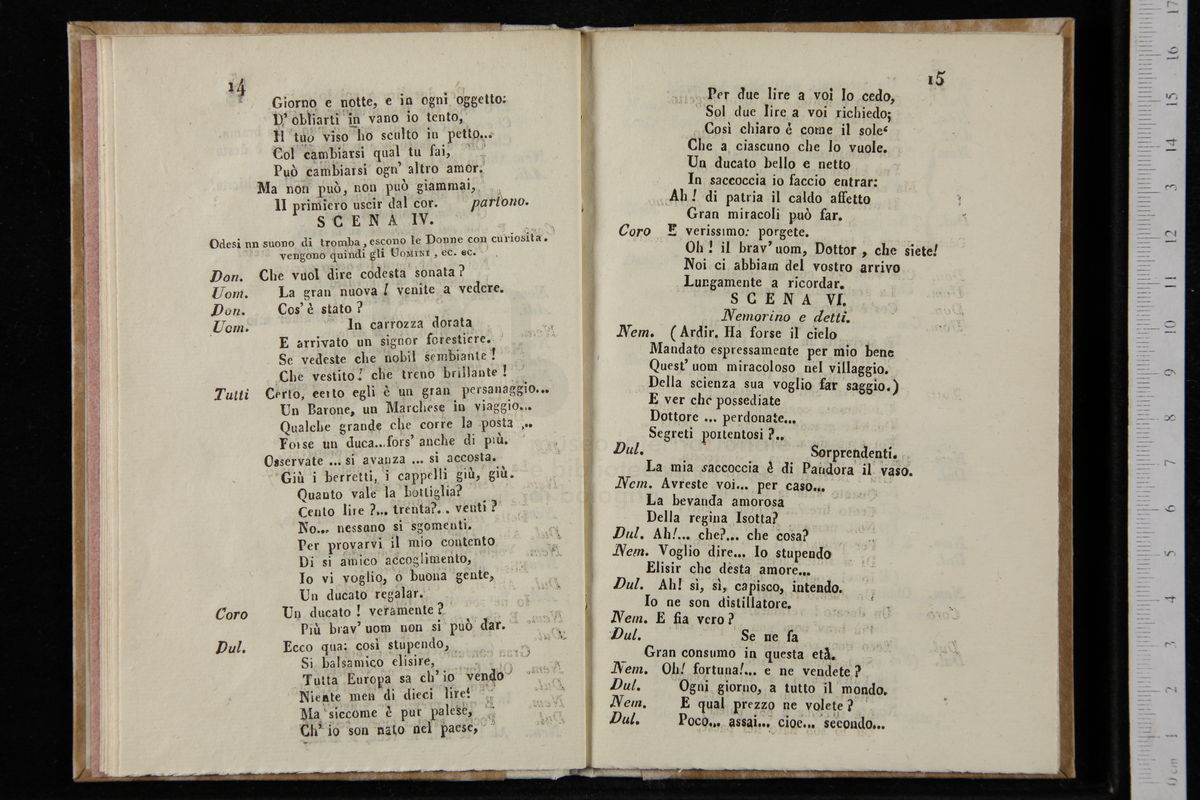 14
Giorno e notte, e in ogni oggetto:
D' obliarti in vano io tento,
Il tuo viso ho sculto in petto...
Col cambiarsi qual tu fai,
Può cambiarsi ogn' altro amor.
Ma non può, non può giammai,
Il primiero uscir dal cor. partono.
SCENA IV.
Odesi nn suono di tromba, escono le Donne con curiosita.
vengono quindi gli UOMINI, ec. ec.
Don. Che vuol dire codesta sonata?
Uom. La gran nuova! venite a vedere.
Don. Cos' è stato?
Uom. In carrozza dorata
E arrivato un signor forestiere.
Se vedeste che nobil sembiante!
Che vestito! che treno brillante!
Tutti Certo, certo egli è un gran persanaggio...
Un Barone, un Marchese in viaggio...
Qualche grande che corre la posta ...
Forse un duca...fors' anche di più.
Osservate ... si avanza ... si accosta.
Giù i berretti, i cappelli giù, giù.
Quanto vale la bottiglia?
Cento lire?... trenta?.. venti?
No... nessuno si sgomenti.
Per provarvi il mio contento
Di si amico accoglimento,
Io vi voglio, o buona gente,
Un ducato regalar.
Coro Un ducato! veramente?
Più brav' uom non si può dar.
Dul. Ecco qua: così stupendo,
Si balsamico elisire,
Tutta Europa sa ch' io vendo
Niente men di dieci lire:
Ma siccome è pur palese,
Ch' io son nato nel paese,
15
Per due lire a voi lo cedo,
Sol due lire a voi richiedo;
Così chiaro è come il sole
Che a ciascuno che lo vuole.
Un ducato bello e netto
In saccoccia io faccio entrar:
Ah! di patria il caldo affetto
Gran miracoli può far.
Coro E verissimo: porgete.
Oh! il brav' uom, Dottor, che siete!
Noi ci abbiam del vostro arrivo
Lungamente a ricordar.
SCENA VI.
Nemorino e detti.
Nem. (Ardir. Ha forse il cielo
Mandato espressamente per mio bene
Quest' uom miracoloso nel villaggio.
Della scienza sua voglio far saggio.)
E ver che possediate
Dottore ... perdonate...
Segreti portentosi?..
Dul. Sorprendenti.
La mia saccoccia è di Pandora il vaso.
Nem. Avreste voi... per caso...
La bevanda amorosa
Della regina Isotta?
Dul. Ah!... che?... che cosa?
Nem. Voglio dire... Io stupendo
Elisir che desta amore...
Dul. Ah! sì, sì, capisco, intendo.
Io ne son distillatore.
Nem. E fia vero?
Dul. Se ne fa
Gran consumo in questa età.
Nem. Oh! fortuna!... e ne vendete?
Dul. Ogni giorno, a tutto il mondo.
Nem. E qual prezzo ne volete?
Dul. Poco... assai... cioe... secondo...
0 cm 1 2 3 4 5 6 7 8 9 10 11 12 13 14 15 16 17